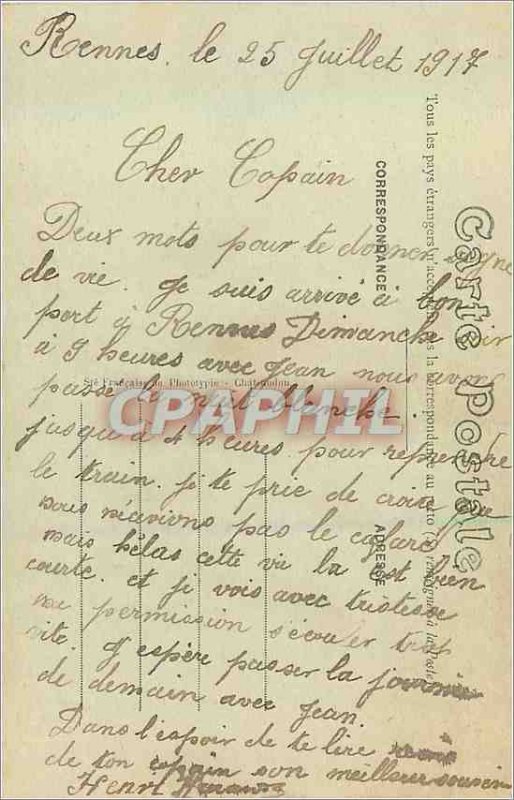 Rennes. le 25 Juillet 1917
Cher Copain
Deux mots pour te donner signe
de vie. Je suis arrivé à bon
port à Rennes Dimanche soir
à 9 heures avec Jean nous avons
passé la nuit blanche
jusqu'à 4 heures. pour reprendre
le train. Je te prie de croire que
nous n'avions pas le cafard
mais hélas cette vie là est bien
courte. et je vois avec tristesse
ma permission s'écouler trop
vite. J'espère passer la journée
de demain avec Jean.
Dans l'espoir de te lire
de ton copain son meilleur souvenir
Henri
Carte Postale
Tous les pays étrangers n'acceptent pas la correspondance au recto (se renseigner à la Poste)
CORRESPONDANCE
ADRESSE
Sté Française de Phototypie - Châteaudun
CPAPHIL